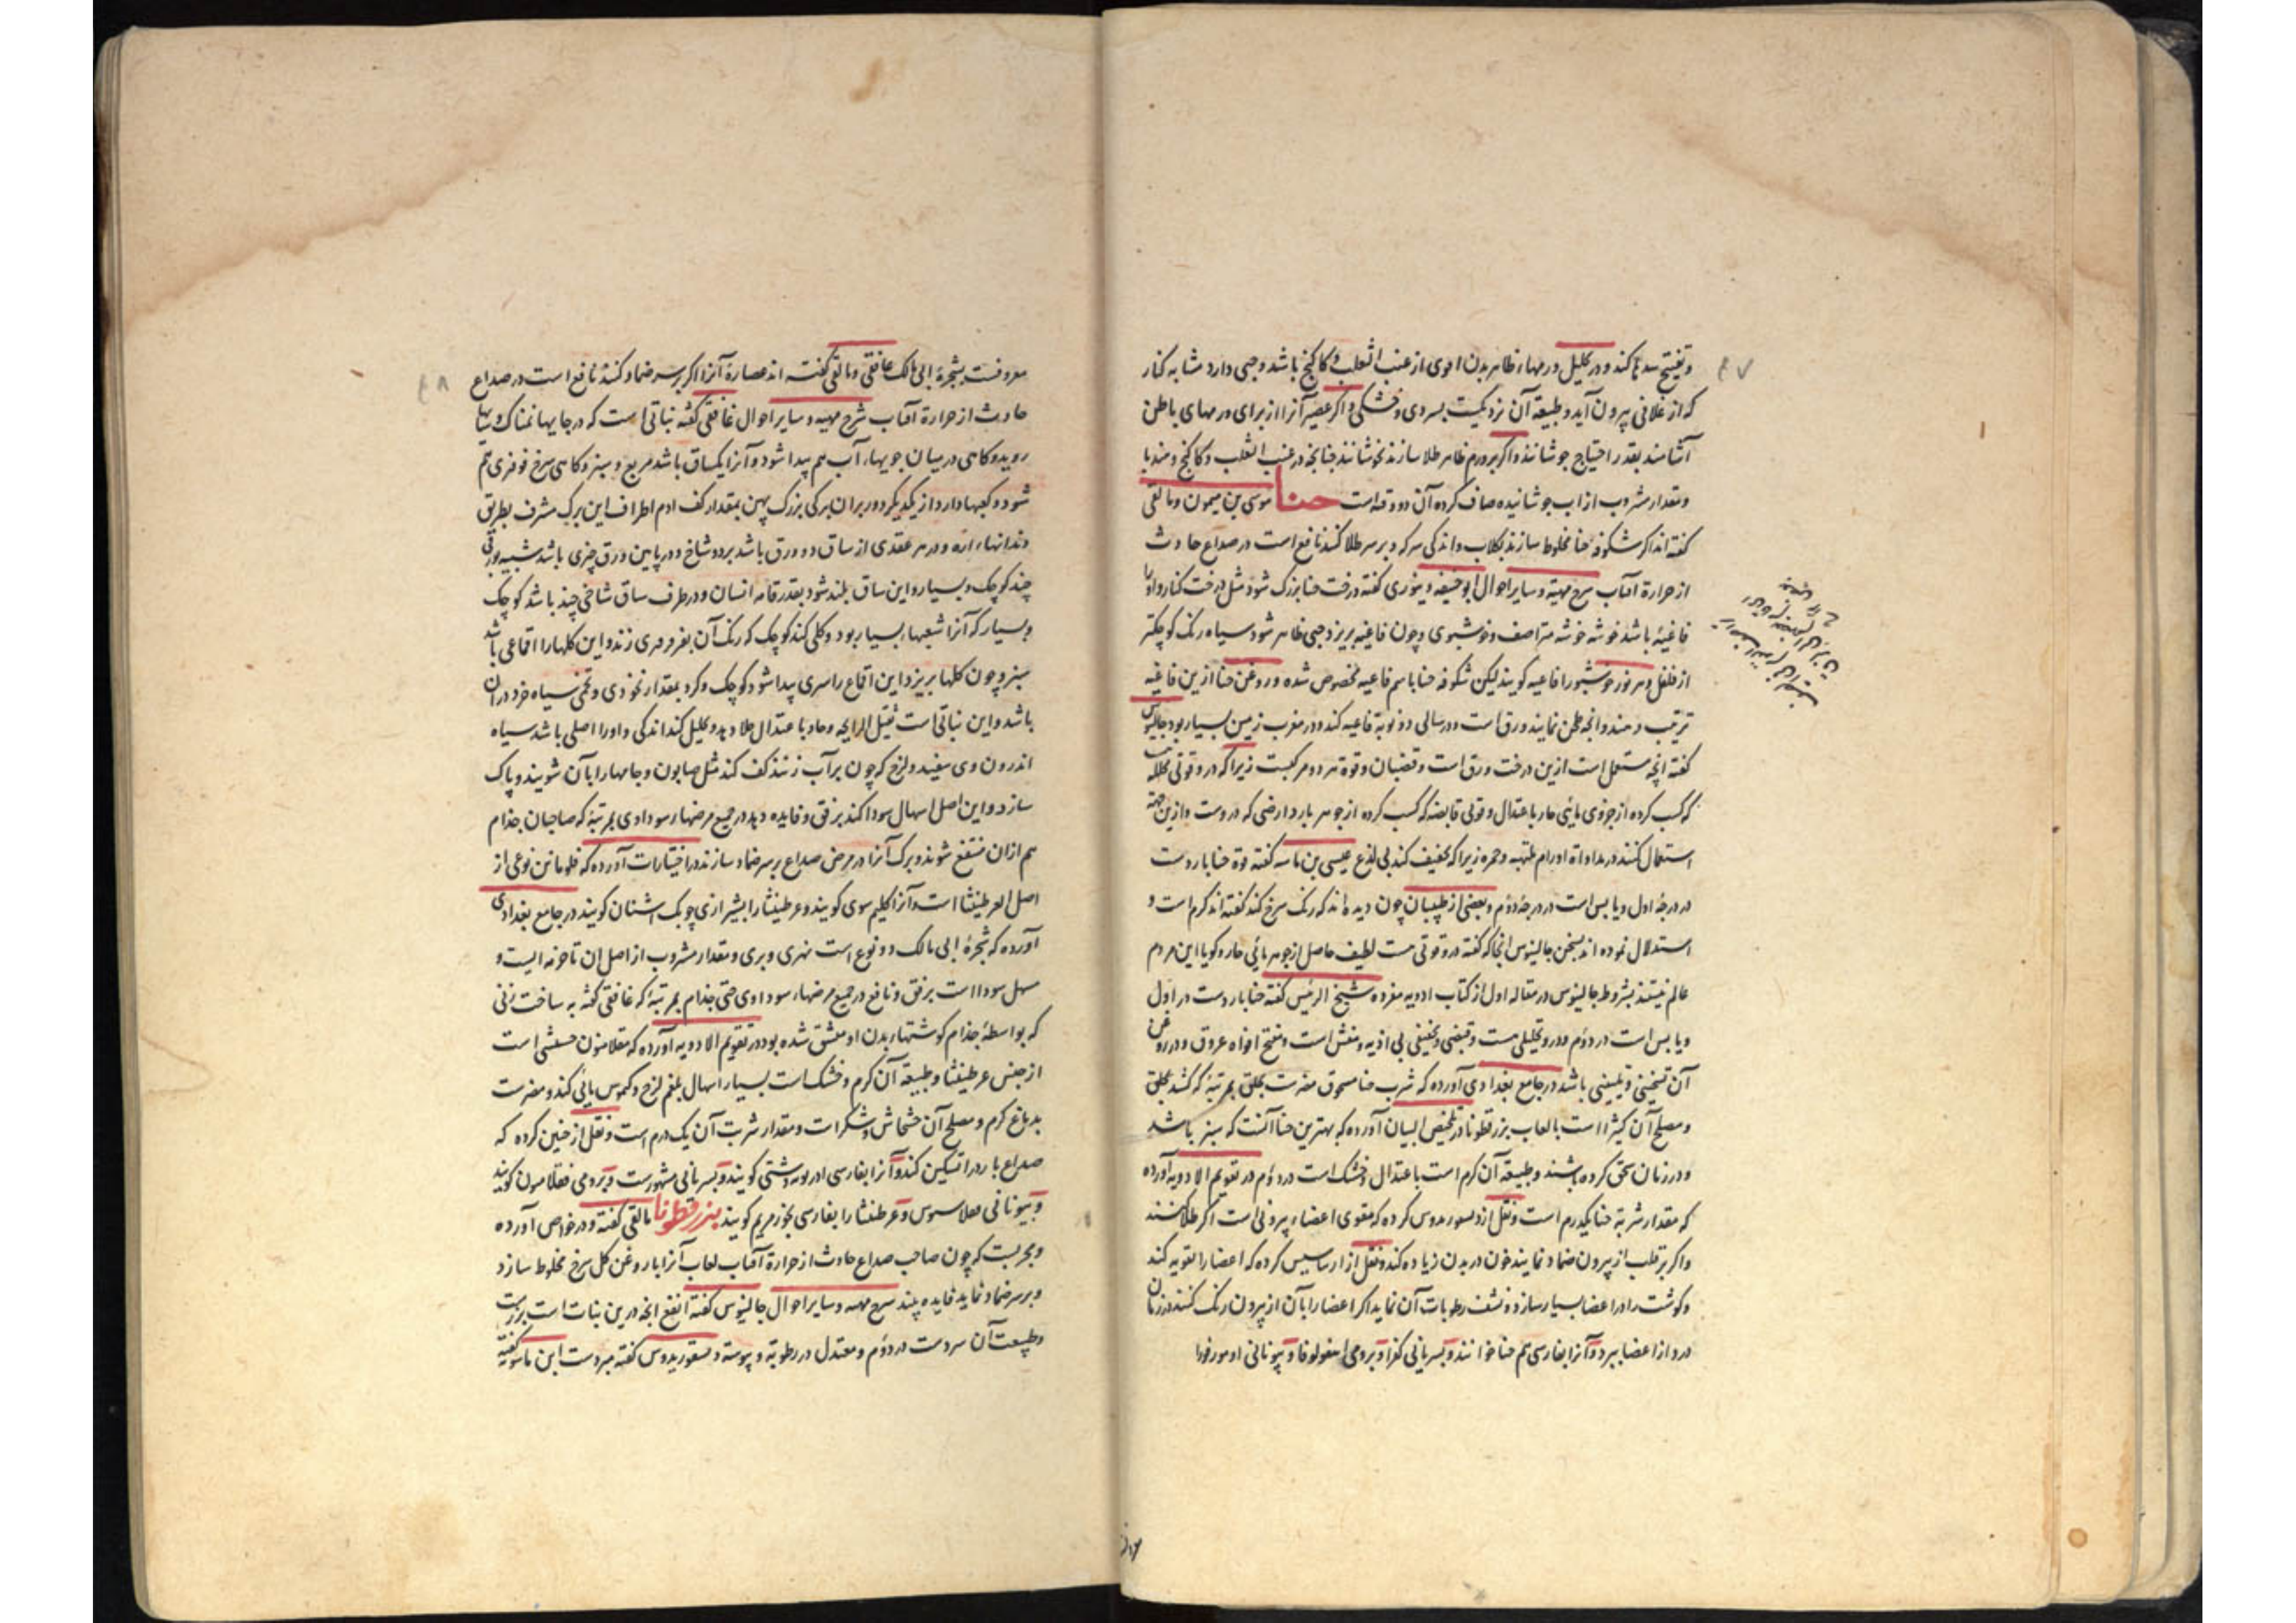 و تفتیح سدها کند و در تحلیل ورمهاء ظاهر بدن اقوی از عنب الثعلب و کاکنج باشد و حبی دارد مشابه کنار
که از غلافی بیرون آید و طبیعة آن نزدیکست بسردی و خشکی و اگر عصیر آنرا از برای ورمهای باطن
آشامند بقدر احتیاج جوشانند و اگر بر ورم ظاهر طلا سازند نجوشانند چنانچه در عنب الثعلب و کاکنج و هندبا
و مقدار مشروب از اب جوشانیده صاف کرده آن دو وقیه است حنا موسی بن میمون و مالقی
گفته اند اگر شکوفه حنا مخلوط سازند بکلاب و اندکی سرکه و بر سر طلا کنند نافع است در صداع حادث
از حرارة آفتاب شرح مهیة و سایر احوال ابو حنیفه دینوری گفته درخت حنا بزرک شود مثل درخت کنار و او را
فاغیهٔ باشد خوشه خوشه متراصف و خوشبوی و چون فاغیه بریزد حبی ظاهر شود سیاه رنک کوچکتر
از فلفل و هر نور خوشبو را فاغیه کویند لیکن شکوفه حنا باسم فاغیه مخصوص شده و روغن حنا ازین فاغیه
ترتیب دهند و انچه طحن نمایند ورق است و در سالی دو نوبة فاغیه کند و در مغرب زمین بسیار بود جالینوس
گفته انچه مستعمل است ازین درخت ورق است و قضبان و قوة هر دو مرکبست زیرا که درو قوتی محلله
که کسب کرده از جزوی مایئی حار باعتدال و قوتی قابضه که کسب کرده از جوهر بارد ارضی که دروست و ازین جهة
استعمال کنند در مداواة اورام ملتهبه و حمره زیرا که تجفیف کند بی لذع عیسی بن ماسه گفته قوة حنا باردست
در درجه اول و یابس است در درجه دوم و بعضی از طبیبان چون دیده اند که رنک سرخ کند گفته اند کرم است و
استدلال نموده اند بسخن جالینوس انجا که گفته درو قوتی هست لطیف حاصل از جوهر مائی حار و کویا این مردم
عالم نیستند بشروط جالینوس در مقاله اول از کتاب ادویه مفرده شیخ الرئیس گفته حنا باردست در اول
و یابس است در دوم و درو تحلیلی هست و قبضی و تجفیفی بی اذیه و منفش است و مفتح افواه عروق و در روغن
آن تسخینی و تلیینی باشد در جامع بغدادی آورده که شرب حنا مسحوق مضرت بحلق بمرتبهٔ که کشد بحلق
و مصلح آن کثیرا است بالعاب بزرقطونا در تلخیص البیان آورده که بهترین حنا آنست که سبز باشد
و در زمان سحق کرده باشند و طبیعة آن کرم است باعتدال و خشک است در دوم در تقویم الادویه آورده
که مقدار شربة حنا یکدرم است و نقل از دیسقوریدوس کرده که مقوی اعضاء بیرونی است اگر طلا کنند
و اگر بر قلب از بیرون ضماد نمایند خون در بدن زیاده کند و نقل از ارساسیس کرده که اعضا را تقویه کند
و کوشت را در اعضا بسیار سازد و نشف رطوبات آن نماید اگر اعضا را بآن از بیرون رنک کنند در زمان
درد از اعضا ببرد و آنرا بفارسی هم حنا خوانند و بسریانی کفرا و برومی
معروفست بشجرهٔ ابی مالک غافقی و مالقی گفته اند عصارهٔ آنرا اگر بر سر ضماد کنند نافع است در صداع
حادث از حرارة آفتاب شرح مهیه و سایر احوال غافقی گفته نباتی است که در جایهاء نمناک و
روید و کاهی در میان جویهاء آب هم پیدا شود و آنرا یکساق باشد مربع و سبز و کاهی سرخ فرفری هم
شود و کعبها دارد از یکدیکر دور بران برکی بزرک پهن بمقدار کف ادم اطراف این برک مشرف بطریق
دندانهاء اره و در هر عقدی از ساق دو ورق باشد بر دو شاخ و در پایین ورق چیزی باشد شبیه بورقی
چند کوچک و بسیار و این ساق بلند شود بقدر قامه انسان و در طرف ساق شاخی چند باشد کوچک
و بسیار که آنرا شعبهاء بسیار بود و کلی کند کوچک که رنک آن بفرفری زند و این کلها را اقماعی باشد
سبز و چون کلها بریزد این اقماع را سری پیدا شود کوچک و کرد بمقدار نخودی و تخمی سیاه خرد در ان
باشد و این نباتی است ثقیل الرایحه و حاد باعتدال جلا دهد و تحلیل کند اندکی و او را اصلی باشد سیاه
اندرون وی سفید و لزج که چون بر آب زنند کف کند مثل صابون و جامها را بآن شویند و پاک
سازد و این اصل اسهال سودا کند برفق و فایده دهد در جمیع مرضهاء سوداوی بمرتبهٔ که صاحبان جذام
هم ازان منتفع شوند و برک آنرا در مرض صداع بر سر ضماد سازند در اختیارات آورده که قلومانن نوعی از
اصل العرطنیثا است و آنرا کلیم سوی کویند و عرطنیثا را بشیرازی چوبک اشنان کویند در جامع بغدادی
آورده که شجرهٔ ابی مالک دو نوع است نهری و بری و مقدار مشروب از اصل ان تا حزنه ایست و
مسهل سودا است برفق و نافع در جمیع مرضهاء سوداوی حتی جذام بمرتبهٔ که غافقی گفته به ساخت زنی
که بواسطهٔ جذام کوشتهاء بدن او منشق شده بود در تقویم الادویه آورده که حشیشی است
از جنس عرطنیثا و طبیعة آن کرم و خشک است بسیار اسهال بلغم لزج و کیموس مایئی کند و مضرت
بدماغ کرم و مصلح آن خشخاش و شکر است و مقدار شربت آن یک درم است و نقل از حنین کرده که
صداع بارد را تسکین کند و آنرا بفارسی کویند و بسریانی مشهورست و برومی کویند
و بیونانی و عرطنیثا را بفارسی بخور مریم کویند بزرقطونا مالقی گفته و در خواص آورده
و مجربست که چون صاحب صداع حادث از حرارة آفتاب لعاب آنرا با روغن کل سرخ مخلوط سازد
و بر سر ضماد نماید فایده بیند شرح مهیه و سایر احوال جالینوس گفته انفع انچه درین نبات است بزرست
و طبیعت آن سردست در دوم و معتدل در رطوبة و یبوسة دیسقوریدوس گفته مبردست ابن ماسویه گفته